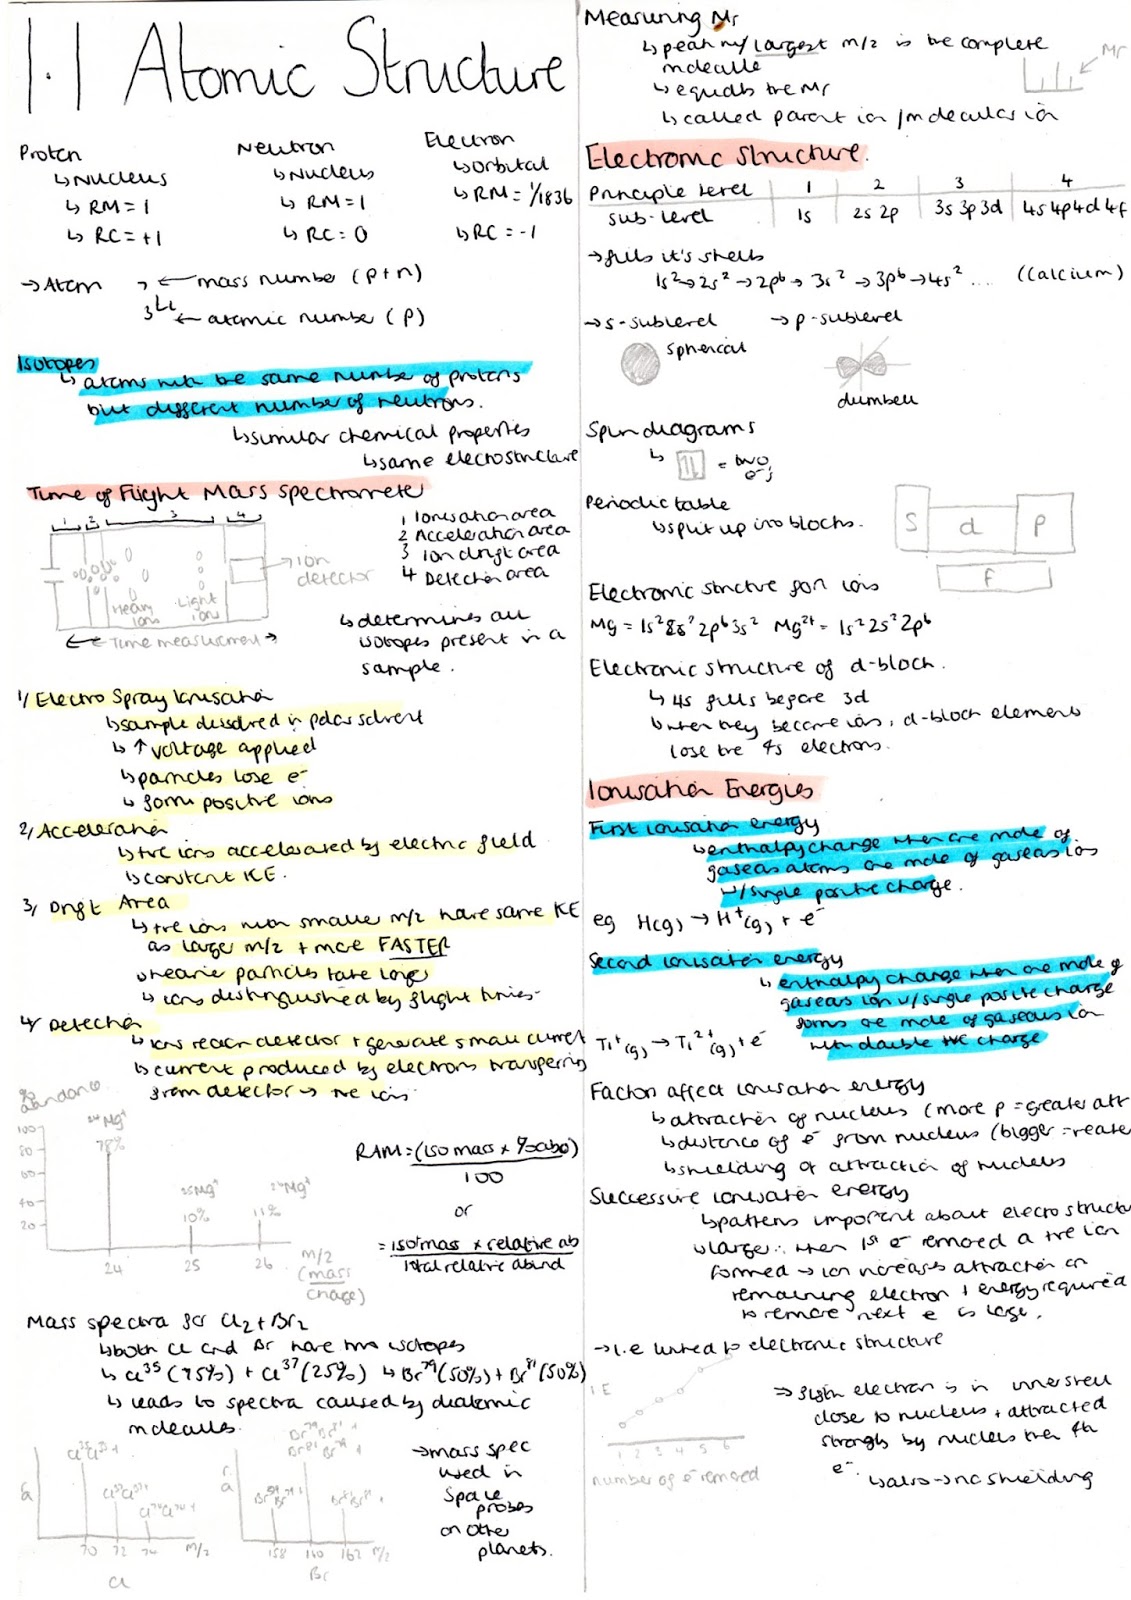 1.1 Atomic Structure
Proton
↳ Nucleus
↳ RM = 1
↳ RC = +1
Neutron
↳ Nucleus
↳ RM = 1
↳ RC = 0
Electron
↳ Orbital
↳ RM = 1/1836
↳ RC = -1
→ Atom 7 ← mass number (p+n)
Li
3 ← atomic number (p)
Isotopes
↳ atoms with the same number of protons
but different number of neutrons.
↳ similar chemical properties
↳ same electrostructure
Time of Flight Mass Spectrometer
1 2 3 4
Heavy ions
Light ions
→ ion detector
← Time measurement →
1 Ionisation area
2 Acceleration area
3 Ion drift area
4 Detection area
↳ determines all
isotopes present in a
sample.
1/ Electro Spray Ionisation
↳ sample dissolved in polar solvent
↳ ↑ voltage applied
↳ particles lose e⁻
↳ form positive ions
2/ Acceleration
↳ +ve ions accelerated by electric field
↳ constant KE.
3/ Drift Area
↳ +ve ions with smaller m/z have same KE
as large m/z + move FASTER
↳ heavier particles take longer
↳ ions distinguished by flight times.
4/ Detection
↳ ions reach detector + generate small current
↳ current produced by electrons transferring
from detector → +ve ions
% abundance
100
80
60
40
20
²⁴Mg⁺
78%
²⁵Mg⁺
10%
²⁶Mg⁺
11%
24 25 26 m/z
(mass
charge)
RAM = (iso mass x % abo)
100
or
= iso mass x relative ab
total relative abund
Mass spectra for Cl₂ + Br₂
↳ both Cl and Br have two isotopes
↳ Cl³⁵ (75%) + Cl³⁷ (25%) ↳ Br⁷⁹ (50%) + Br⁸¹ (50%)
↳ leads to spectra caused by diatomic
molecules.
70 72 74 m/z
Cl
158 160 162 m/z
Br
→ mass spec
used in
space
probes
on other
planets.
Measuring Mr
↳ peak w/ largest m/z is the complete
molecule
↳ equals the Mr
↳ called parent ion / molecular ion
Mr
Electronic Structure.
Principle level 1 2 3 4
sub-level 1s 2s 2p 3s 3p 3d 4s 4p 4d 4f
→ fills it's shells
1s² → 2s² → 2p⁶ → 3s² → 3p⁶ → 4s² .... (Calcium)
→ s-sublevel → p-sublevel
spherical
dumbell
Spin diagrams
↳ ↑↓ = two e⁻s
Periodic table
↳ split up into blocks.
S d P
F
Electronic structure for ions
Mg = 1s² 2s² 2p⁶ 3s² Mg²⁺ = 1s² 2s² 2p⁶
Electronic structure of d-block.
↳ 4s fills before 3d
↳ when they become ions, d-block elements
lose the 4s electrons.
Ionisation Energies
First ionisation energy
↳ enthalpy change when one mole of
gaseous atoms one mole of gaseous ions
w/ single positive charge.
eg H(g) → H⁺(g) + e⁻
Second ionisation energy
↳ enthalpy change when one mole of
gaseous ion w/ single positive charge
forms one mole of gaseous ion
with double +ve charge
Ti⁺(g) → Ti²⁺(g) + e⁻
Factor affect ionisation energy
↳ attraction of nucleus (more p = greater att
↳ distance of e⁻ from nucleus (bigger =
↳ shielding of attraction of nucleus
Successive ionisation energy
↳ patterns important about electro structu
↳ large ∴ when 1st e⁻ removed a +ve ion
formed → ion increases attraction on
remaining electron + energy required
to remove next e is large.
→ I.E linked to electronic structure
I E
1 2 3 4 5 6
number of e⁻ removed
→ fifth electron is in inner shell
close to nucleus + attracted
strongly by nucleus then 4th
e⁻.
↳ also → no shielding